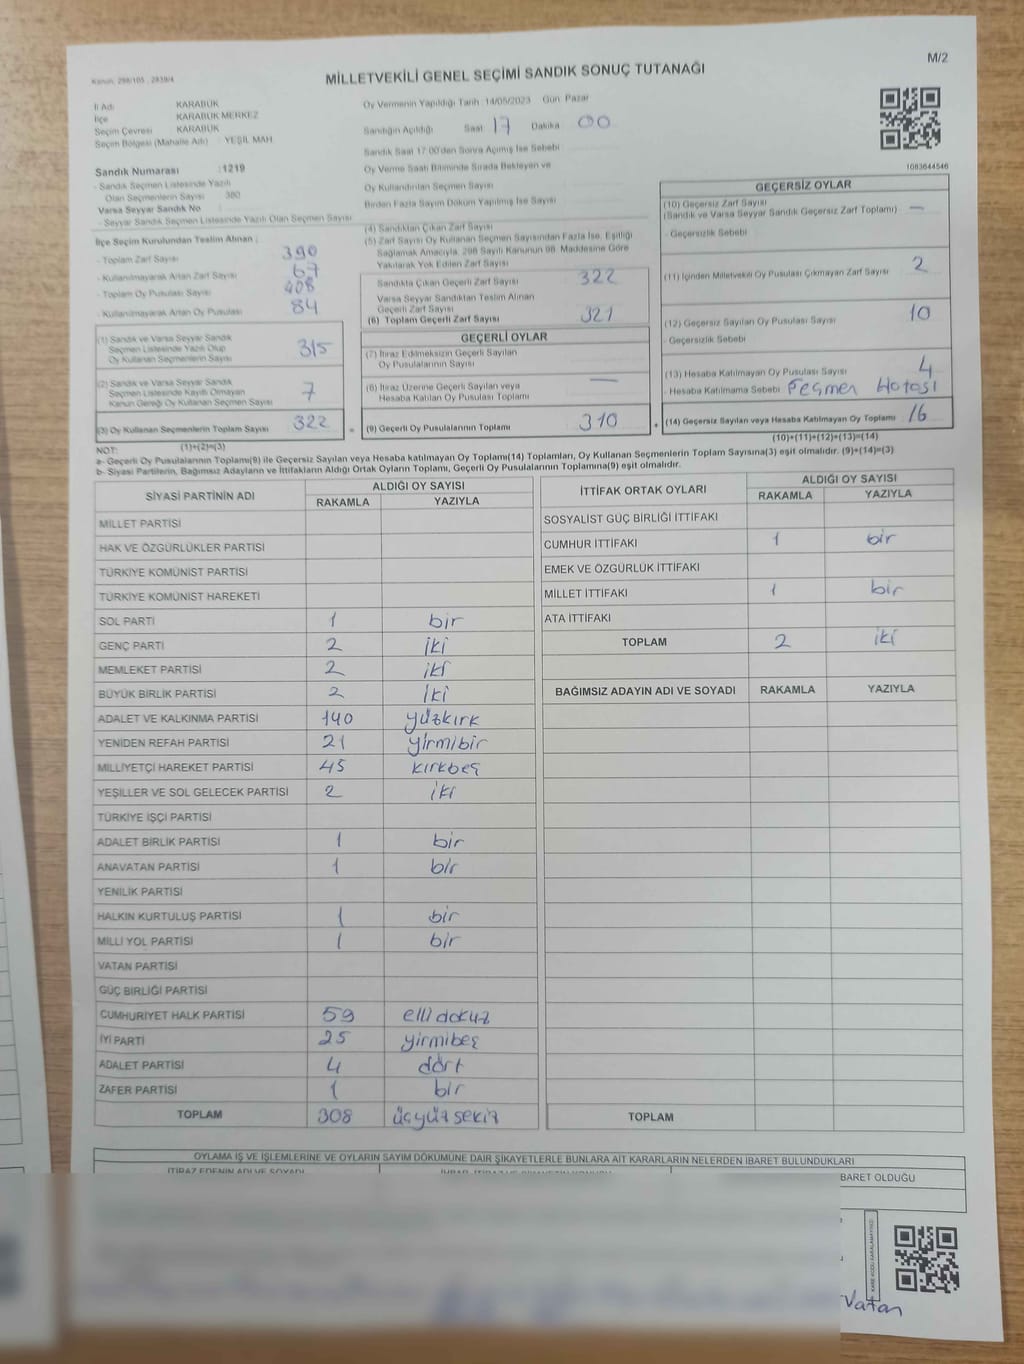 M/2
Kanun: 298/105 , 2839/4
MİLLETVEKİLİ GENEL SEÇİMİ SANDIK SONUÇ TUTANAĞI
İl Adı KARABÜK
İlçe KARABÜK MERKEZ
Seçim Çevresi KARABÜK
Seçim Bölgesi (Mahalle Adı) : YEŞİL MAH
Sandık Numarası :1219
- Sandık Seçmen Listesinde Yazılı
Olan Seçmenlerin Sayısı 380
Varsa Seyyar Sandık No
- Seyyar Sandık Seçmen Listesinde Yazılı Olan Seçmen Sayısı
Oy Vermenin Yapıldığı Tarih :14/05/2023 Gün: Pazar
Sandığın Açıldığı Saat 17 Dakika 00
Sandık Saat 17:00'den Sonra Açılmış İse Sebebi
Oy Verme Saati Bitiminde Sırada Bekleyen ve
Oy Kullandırılan Seçmen Sayısı
Birden Fazla Sayım Döküm Yapılmış İse Sayısı
1083644546
İlçe Seçim Kurulundan Teslim Alınan :
- Toplam Zarf Sayısı 390
- Kullanılmayarak Artan Zarf Sayısı 67
- Toplam Oy Pusulası Sayısı 408
- Kullanılmayarak Artan Oy Pusulası 84
(1) Sandık ve Varsa Seyyar Sandık
Seçmen Listesinde Yazılı Olup
Oy Kullanan Seçmenlerin Sayısı 315
(2) Sandık ve Varsa Seyyar Sandık
Seçmen Listesinde Kayıtlı Olmayan
Kanun Gereği Oy Kullanan Seçmen Sayısı 7
(3) Oy Kullanan Seçmenlerin Toplam Sayısı 322
(1)+(2)=(3)
(4) Sandıktan Çıkan Zarf Sayısı
(5) Zarf Sayısı Oy Kullanan Seçmen Sayısından Fazla İse, Eşitliği
Sağlamak Amacıyla, 298 Sayılı Kanunun 98. Maddesine Göre
Yakılarak Yok Edilen Zarf Sayısı
Sandıkta Çıkan Geçerli Zarf Sayısı 322
Varsa Seyyar Sandıktan Teslim Alınan
Geçerli Zarf Sayısı
(6) Toplam Geçerli Zarf Sayısı 321
GEÇERLİ OYLAR
(7) İtiraz Edilmeksizin Geçerli Sayılan
Oy Pusulalarının Sayısı
(8) İtiraz Üzerine Geçerli Sayılan veya
Hesaba Katılan Oy Pusulaları Toplamı —
= (9) Geçerli Oy Pusulalarının Toplamı 310
GEÇERSİZ OYLAR
(10) Geçersiz Zarf Sayısı
(Sandık ve Varsa Seyyar Sandık Geçersiz Zarf Toplamı) —
- Geçersizlik Sebebi
(11) İçinden Milletvekili Oy Pusulası Çıkmayan Zarf Sayısı 2
(12) Geçersiz Sayılan Oy Pusulası Sayısı 10
- Geçersizlik Sebebi
(13) Hesaba Katılmayan Oy Pusulası Sayısı 4
- Hesaba Katılmama Sebebi Seçmen Hatası
+ (14) Geçersiz Sayılan veya Hesaba Katılmayan Oy Toplamı 16
(10)+(11)+(12)+(13)=(14)
NOT:
a- Geçerli Oy Pusulalarının Toplamı(9) ile Geçersiz Sayılan veya Hesaba katılmayan Oy Toplamı(14) Toplamları, Oy Kullanan Seçmenlerin Toplam Sayısına(3) eşit olmalıdır. (9)+(14)=(3)
b- Siyasi Partilerin, Bağımsız Adayların ve İttifakların Aldığı Ortak Oyların Toplamı, Geçerli Oy Pusulalarının Toplamına(9) eşit olmalıdır.
SİYASİ PARTİNİN ADI ALDIĞI OY SAYISI
RAKAMLA YAZIYLA
MİLLET PARTİSİ
HAK VE ÖZGÜRLÜKLER PARTİSİ
TÜRKİYE KOMÜNİST PARTİSİ
TÜRKİYE KOMÜNİST HAREKETİ
SOL PARTİ 1 bir
GENÇ PARTİ 2 iki
MEMLEKET PARTİSİ 2 iki
BÜYÜK BİRLİK PARTİSİ 2 iki
ADALET VE KALKINMA PARTİSİ 140 yüzkırk
YENİDEN REFAH PARTİSİ 21 yirmibir
MİLLİYETÇİ HAREKET PARTİSİ 45 kırkbeş
YEŞİLLER VE SOL GELECEK PARTİSİ 2 iki
TÜRKİYE İŞÇİ PARTİSİ
ADALET BİRLİK PARTİSİ 1 bir
ANAVATAN PARTİSİ 1 bir
YENİLİK PARTİSİ
HALKIN KURTULUŞ PARTİSİ 1 bir
MİLLİ YOL PARTİSİ 1 bir
VATAN PARTİSİ
GÜÇ BİRLİĞİ PARTİSİ
CUMHURİYET HALK PARTİSİ 59 elli dokuz
İYİ PARTİ 25 yirmibeş
ADALET PARTİSİ 4 dört
ZAFER PARTİSİ 1 bir
TOPLAM 308 üçyüz sekiz
İTTİFAK ORTAK OYLARI ALDIĞI OY SAYISI
RAKAMLA YAZIYLA
SOSYALİST GÜÇ BİRLİĞİ İTTİFAKI
CUMHUR İTTİFAKI 1 bir
EMEK VE ÖZGÜRLÜK İTTİFAKI
MİLLET İTTİFAKI 1 bir
ATA İTTİFAKI
TOPLAM 2 iki
BAĞIMSIZ ADAYIN ADI VE SOYADI RAKAMLA YAZIYLA
TOPLAM
OYLAMA İŞ VE İŞLEMLERİNE VE OYLARIN SAYIM DÖKÜMÜNE DAİR ŞİKAYETLERLE BUNLARA AİT KARARLARIN NELERDEN İBARET BULUNDUKLARI
İTİRAZ EDENİN ADI VE SOYADI
İBARET OLDUĞU
KARE KODU KARALAMAYINIZ!
Vatan